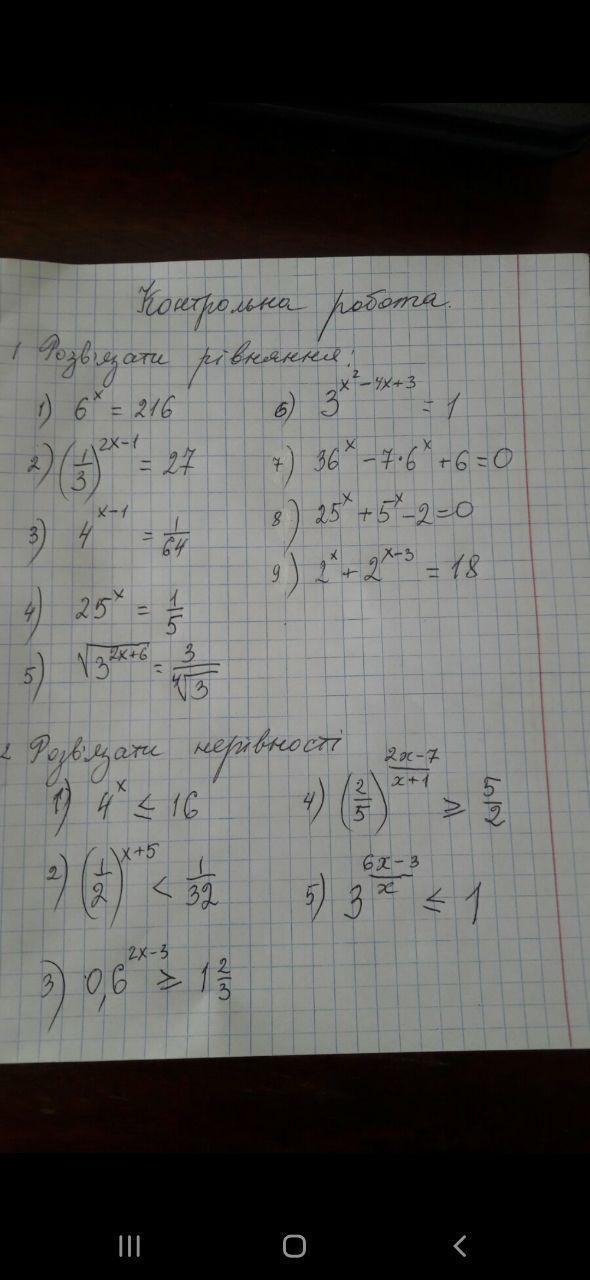 Контрольна робота.
1 Розв'язати рівняння:
1) 6^x = 216
2) (1/3)^(2x-1) = 27
3) 4^(x-1) = 1/64
4) 25^x = 1/5
5) √(3^(2x+6)) = 3/⁴√3
6) 3^(x²-4x+3) = 1
7) 36^x - 7·6^x + 6 = 0
8) 25^x + 5^x - 2 = 0
9) 2^x + 2^(x-3) = 18
2 Розв'язати нерівності
1) 4^x ≤ 16
2) (1/2)^(x+5) < 1/32
3) 0,6^(2x-3) ≥ 1 2/3
4) (2/5)^((2x-7)/(x+1)) ≥ 5/2
5) 3^((6x-3)/x) ≤ 1